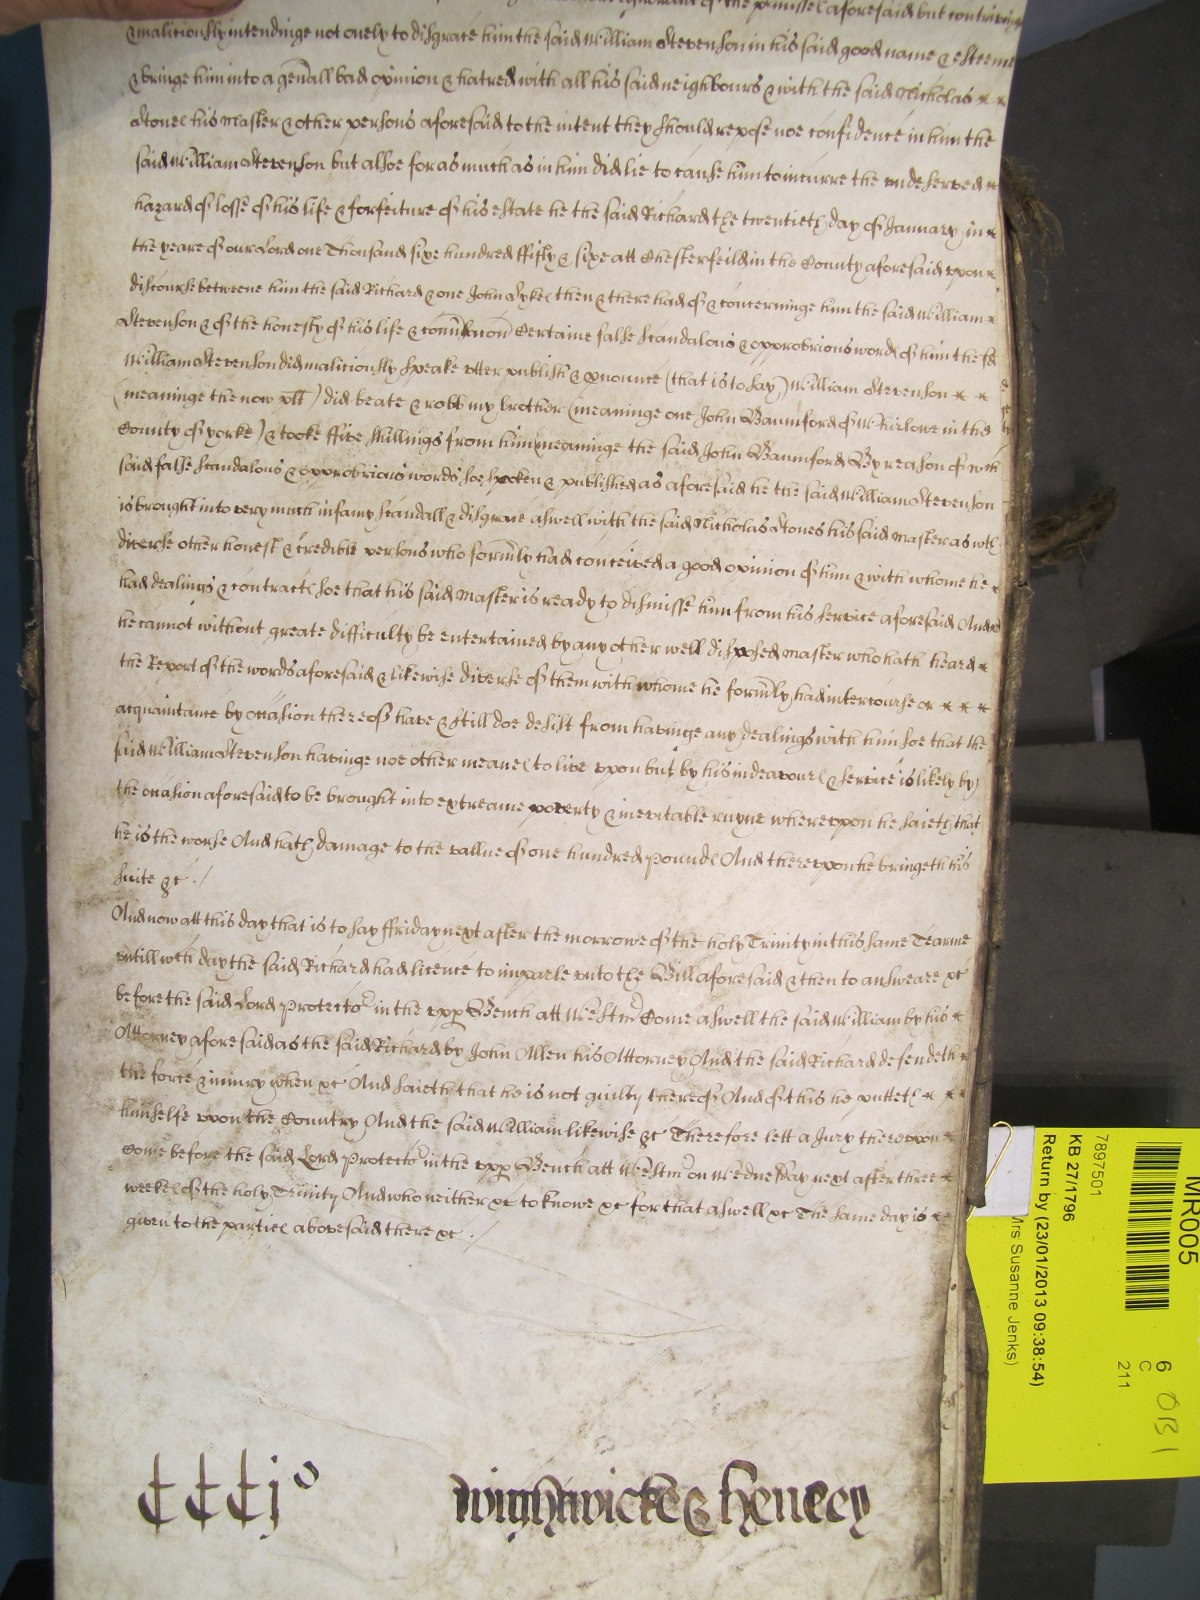 of the premisses aforesaid but contriving
& malitiously intendinge not onely to disgrace him the said William Stevenson in his said good name & esteeme
& bringe him into a gen̄all bad opinion & hatred with all his said neighbours & with the said Nicholas
Stones his Master & other persons aforesaid to the intent they should repose noe confidence in him the
said William Stevenson but alsoe for as much as in him did lie to cause him to incurre the undeserved
hazard of losse of his life & forfeiture of his estate he the said Richard the twentieth day of January in
the yeare of our Lord one Thousand sixe hundred ffifty & sixe att Chesterfeild in the County aforesaid upon
discourse betweene him the said Richard & one John Dykes then & there had of & concerninge him the said William
Stevenson & of the honesty of his life & conv̄sacon̄ Certaine false scandalous & opprobrious words of him the sd
William Stevenson did malitiously speake utter publish & p̱nounce (that is to say) William Stevenson
(meaninge the now plt̄) did beate & robb my brother (meaninge one John Bamford of Whirlowe in the
County of Yorke) & tooke ffive shillings from him meaninge the said John Bamford By reason of wch
said false scandalous & opprobrious words soe spoken & published as aforesaid he the said William Stevenson
is brought into very much infamy scandall & disgrace aswell with the said Nicholas Stones his said Master as wth
diverse other honest & credible persons who form̄ly had conceived a good opinion of him & with whome he
had dealings & contracts soe that his said Master is ready to dismisse him from his service aforesaid And
he cannot without greate difficulty be entertained by any other well disposed Master who hath heard
the Report of the words aforesaid & likewise diverse of them with whome he form̄ly had intercourse or
acquaintance by occasion thereof have & still doe desist from havinge any dealings with him soe that the
said William Stevenson havinge noe other meanes to live upon but by his indeavours & service is likely by
the occasion aforesaid to be brought into extreame poverty & inevitable ruyne whereupon he saieth that
he is the worse And hath damage to the vallue of one hundred pounds And thereupon he bringeth his
suite &c ./
And now att this day that is to say ffriday next after the morrowe of the holy Trinity in this same Tearme
untill wch day the said Richard had licence to imparle unto the Bill aforesaid & then to answeare &c
before the said Lord Protector in the upp̱ Bench att Westmr Come aswell the said William by his
Attorney aforesaid as the said Richard by John Allen his Attorney And the said Richard defendeth
the force & iniury when &c And saieth that he is not guilty thereof And of this he putteth
himselfe upon the Country And the said William likewise &c Therefore lett a Jury thereupon
Come before the said Lord Protector in the upp̱ Bench att Westmr on Wednesday next after three
weekes of the holy Trinity And who neither &c to knowe &c for that aswell &c The same day is
given to the parties abovesaid there &c ./
CCCjo
Wightwicke & Henley
MR005
7897501
KB 27/1796
Return by (23/01/2013 09:38:54)
Mrs Susanne Jenks)
6
C
211
OB1